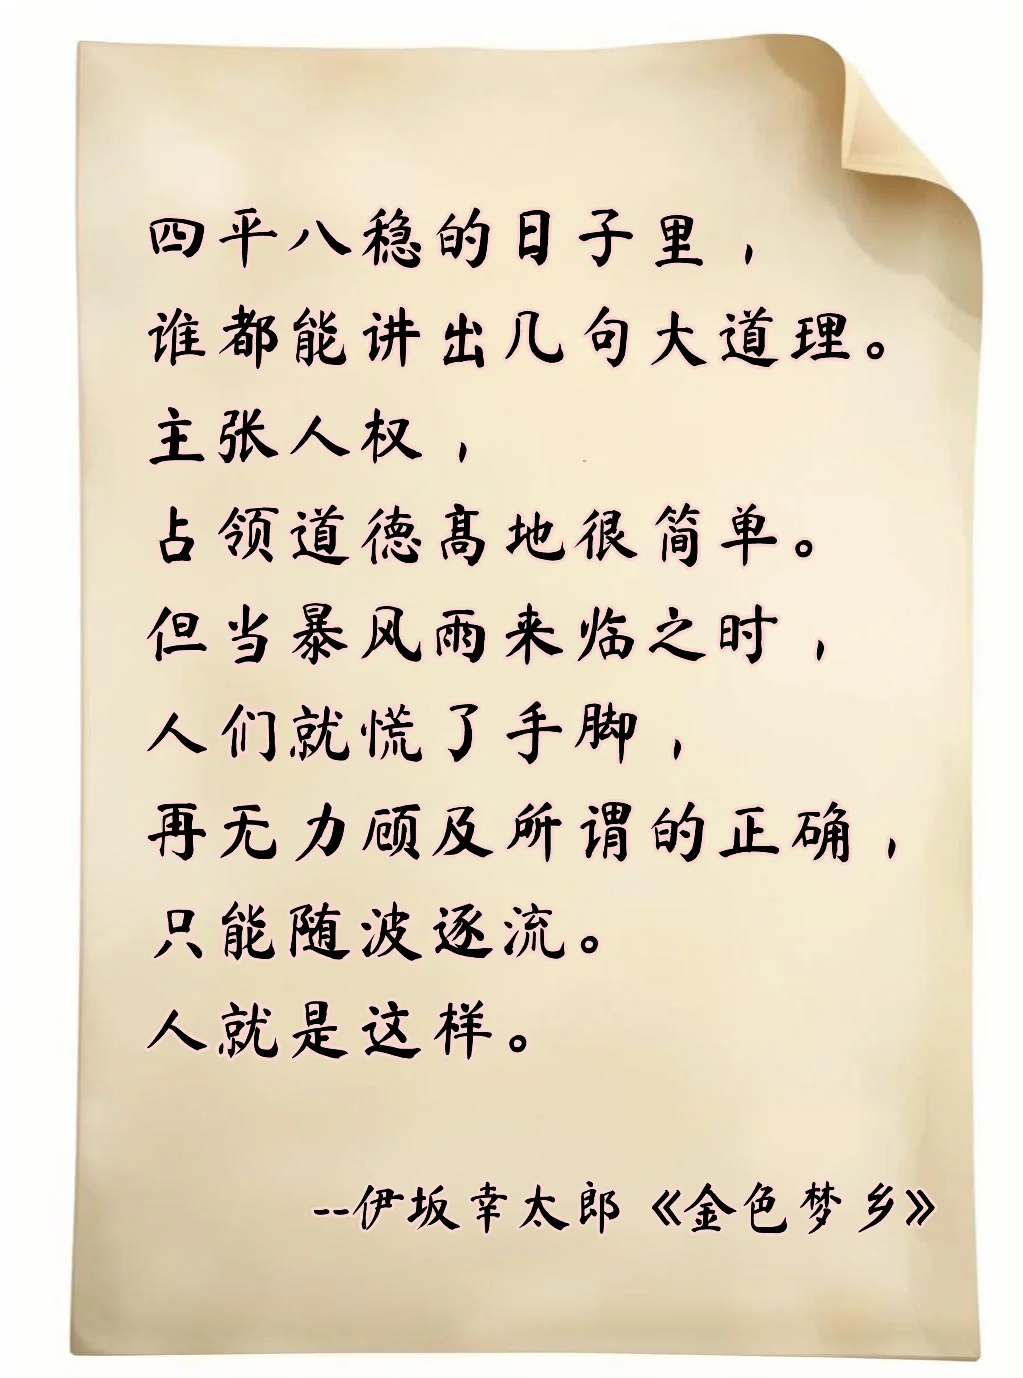 四平八稳的日子里，
谁都能讲出几句大道理。
主张人权，
占领道德高地很简单。
但当暴风雨来临之时，
人们就慌了手脚，
再无力顾及所谓的正确，
只能随波逐流。
人就是这样。
--伊坂幸太郎《金色梦乡》